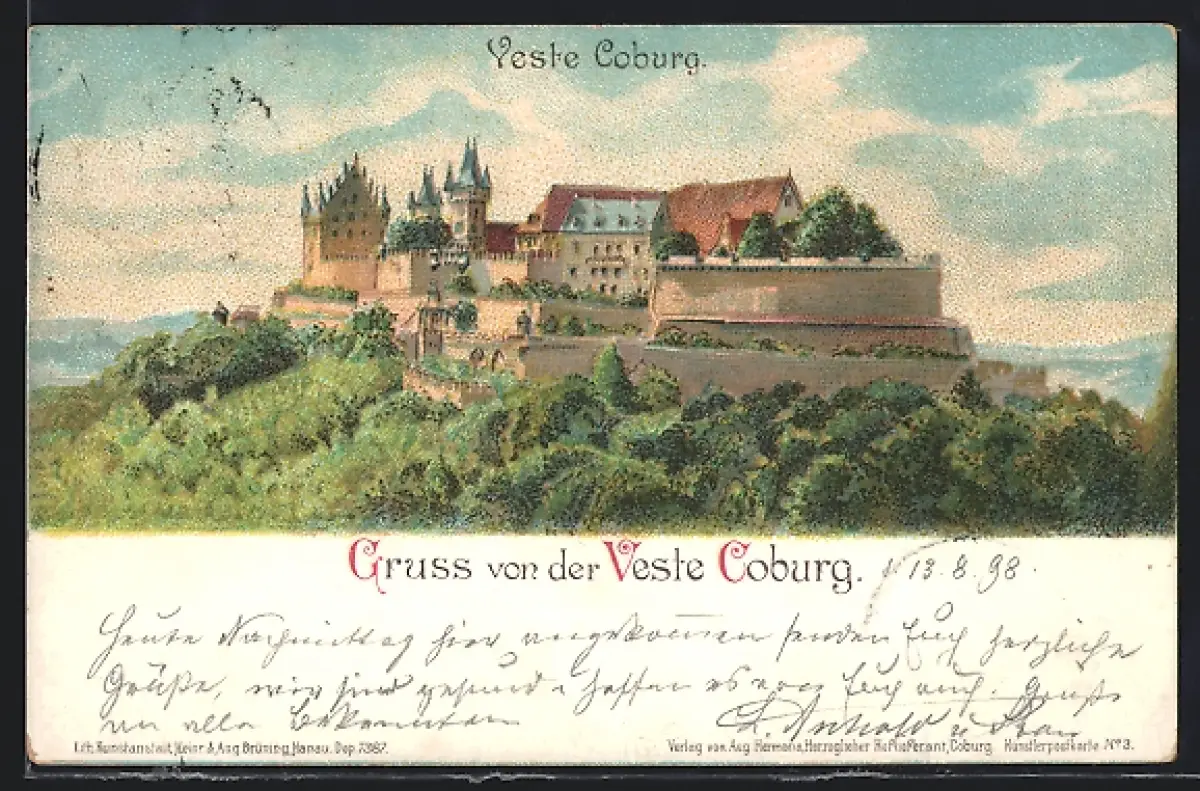 Veste Coburg.
Gruss von der Veste Coburg. 13.8.98.
Heute Nachmittag hier angekommen senden Euch herzliche
Grüße, wir sind gesund u hoffen es von Euch auch. Gruß
an alle Bekannten
u Frau
Lith. Kunstanstalt, Heinr. & Aug. Brüning, Hanau. Dep. 7387.
Verlag von Aug. Hermann, Herzoglicher Hoflieferant, Coburg. Künstlerpostkarte No 3.